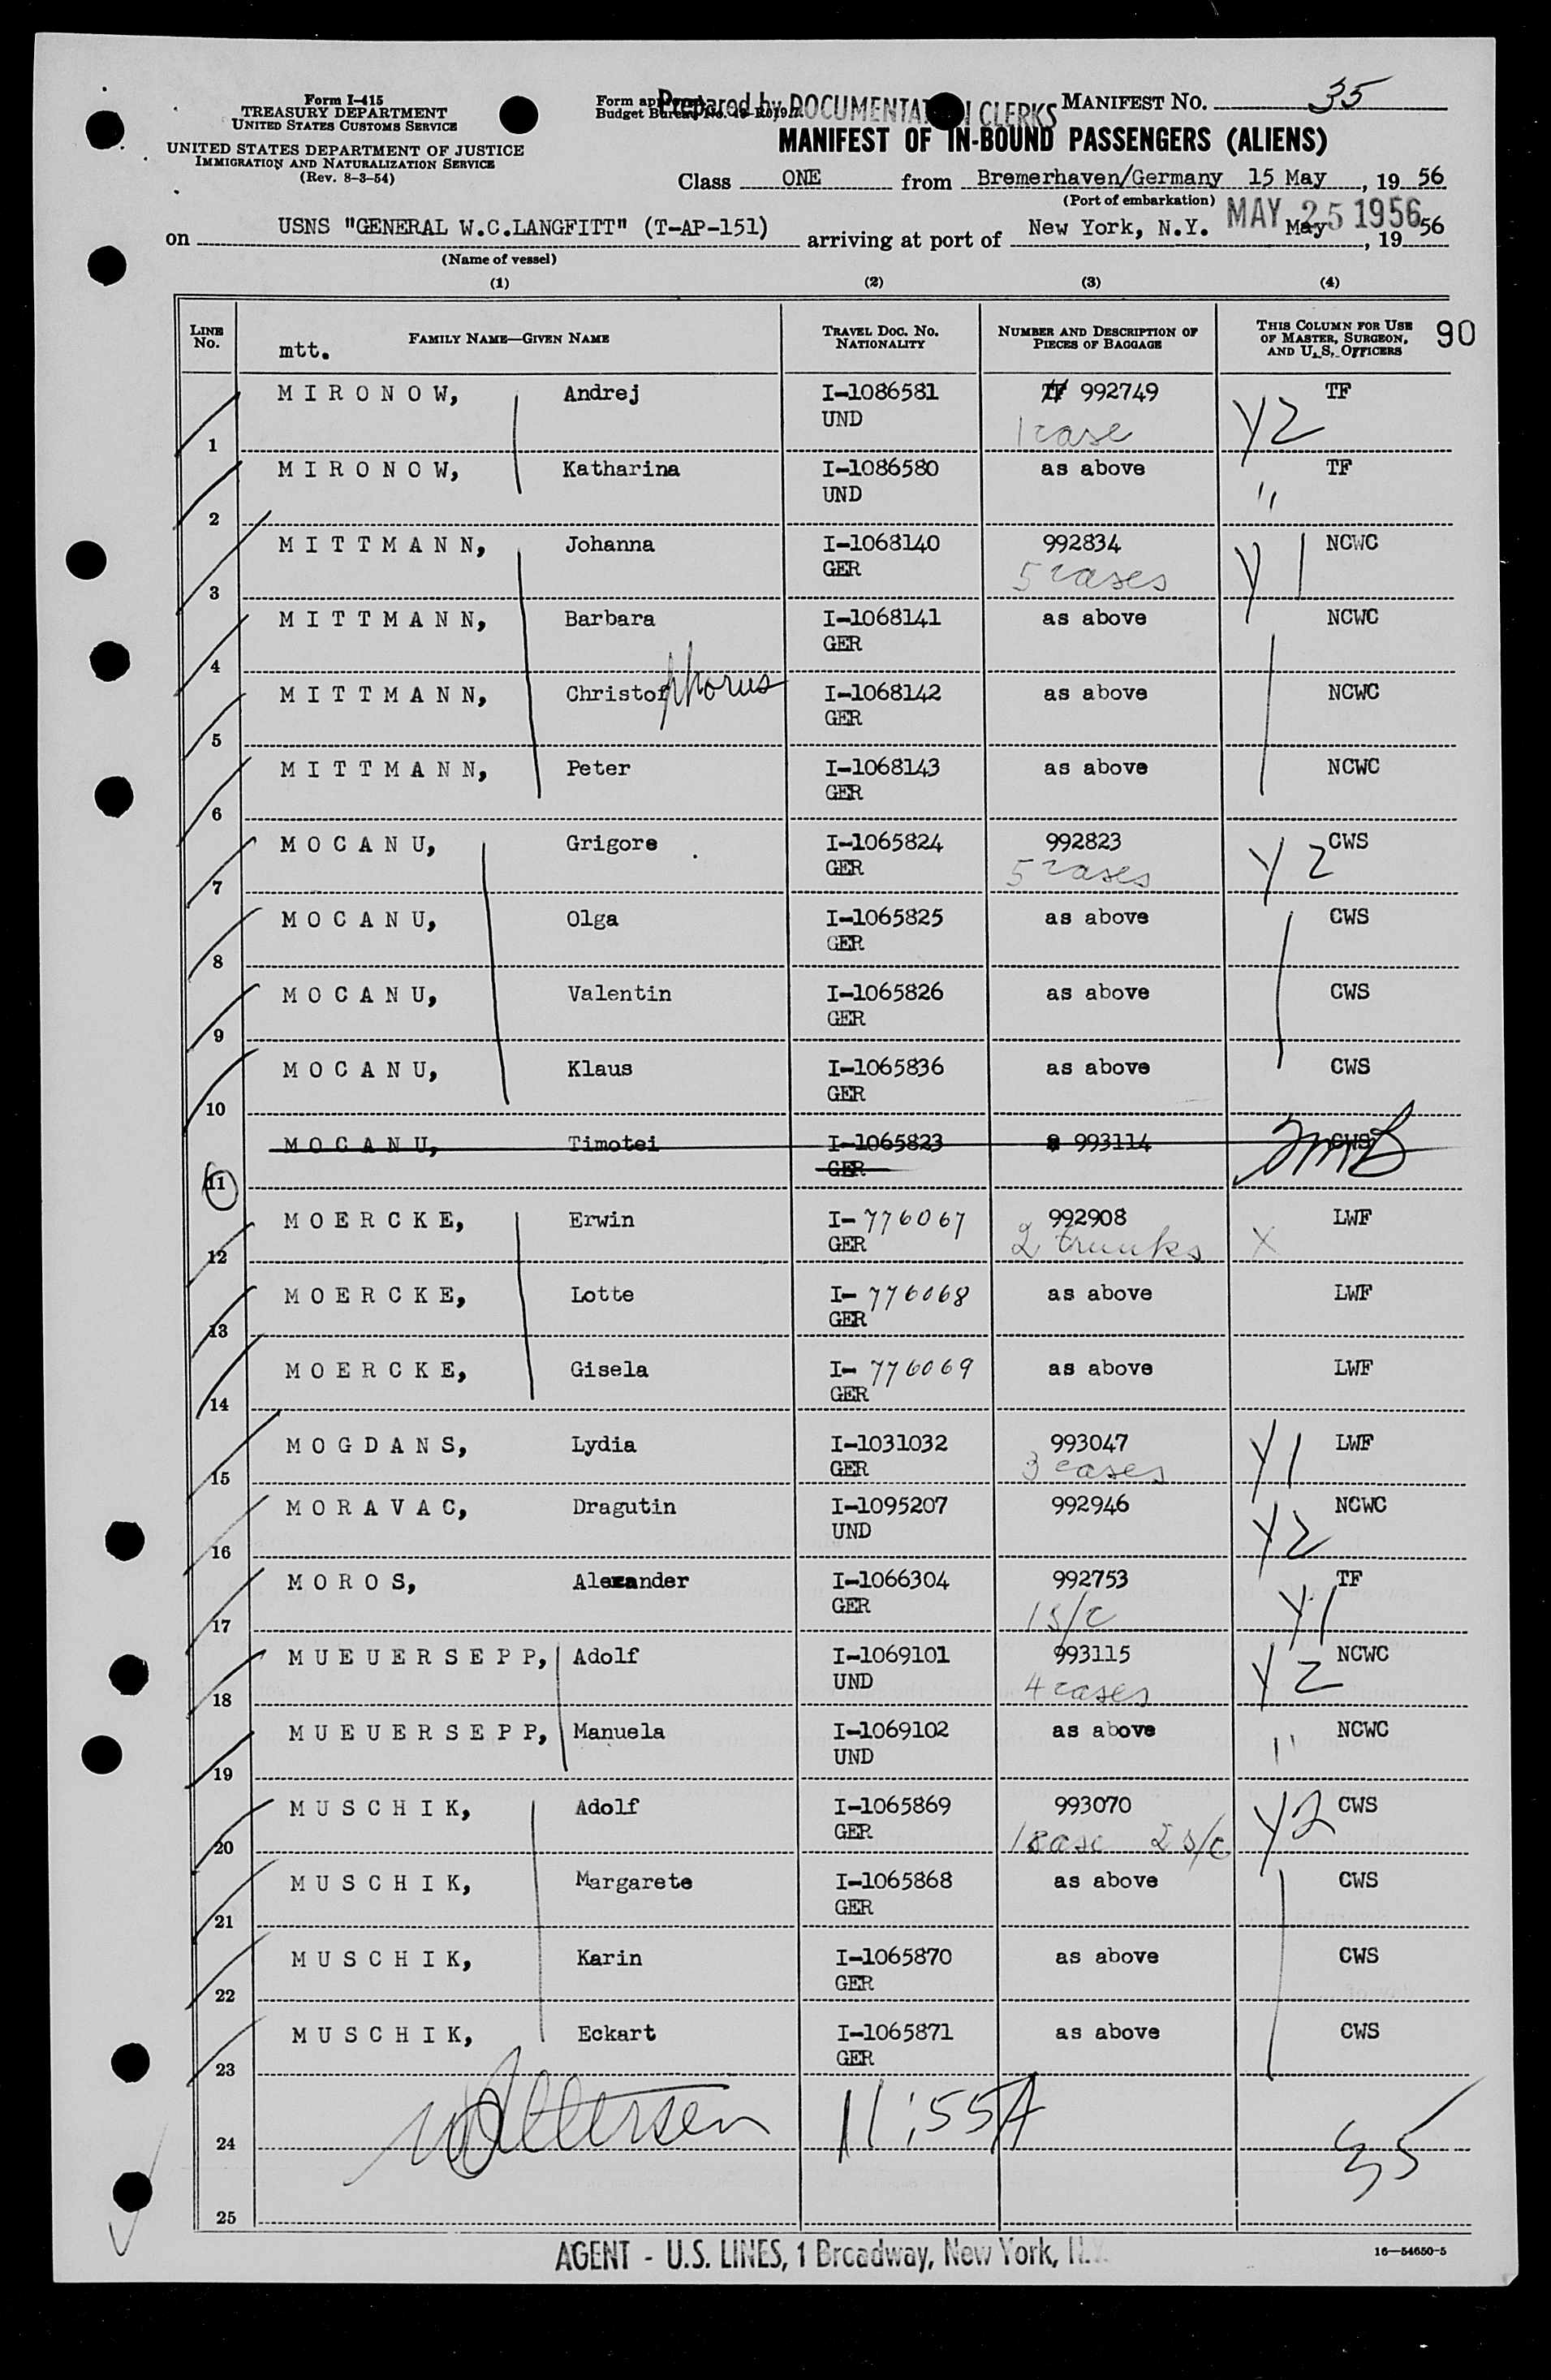 Form I-415
TREASURY DEPARTMENT
UNITED STATES CUSTOMS SERVICE
UNITED STATES DEPARTMENT OF JUSTICE
IMMIGRATION AND NATURALIZATION SERVICE
(Rev. 8-3-54)
Form
Budget Bureau No.
Prepared by DOCUMENTATION CLERKS
MANIFEST NO. 35
MANIFEST OF IN-BOUND PASSENGERS (ALIENS)
Class ONE from Bremerhaven/Germany 15 May, 19 56
(Port of embarkation)
MAY 25 1956
on USNS "GENERAL W.C.LANGFITT" (T-AP-151) arriving at port of New York, N.Y. May, 19 56
(Name of vessel)
(1) (2) (3) (4)
LINE NO. FAMILY NAME—GIVEN NAME TRAVEL DOC. NO. NATIONALITY NUMBER AND DESCRIPTION OF PIECES OF BAGGAGE THIS COLUMN FOR USE OF MASTER, SURGEON, AND U. S. OFFICERS 90
mtt.
M I R O N O W, Andrej I-1086581 992749 TF
1 UND 1 case Y2
M I R O N O W, Katharina I-1086580 as above TF
2 UND "
M I T T M A N N, Johanna I-1068140 992834 NCWC
3 GER 5 cases Y1
M I T T M A N N, Barbara I-1068141 as above NCWC
4 GER
M I T T M A N N, Christophorus I-1068142 as above NCWC
5 GER
M I T T M A N N, Peter I-1068143 as above NCWC
6 GER
M O C A N U, Grigore I-1065824 992823 CWS
7 GER 5 cases Y2
M O C A N U, Olga I-1065825 as above CWS
8 GER
M O C A N U, Valentin I-1065826 as above CWS
9 GER
M O C A N U, Klaus I-1065836 as above CWS
10 GER
M O C A N U, Timotei I-1065823 993114 CWS
11 GER
M O E R C K E, Erwin I-776067 992908 LWF
12 GER 2 trunks X
M O E R C K E, Lotte I-776068 as above LWF
13 GER
M O E R C K E, Gisela I-776069 as above LWF
14 GER
M O G D A N S, Lydia I-1031032 993047 LWF
15 GER 3 cases Y1
M O R A V A C, Dragutin I-1095207 992946 NCWC
16 UND Y2
M O R O S, Alexander I-1066304 992753 TF
17 GER 1 s/c Y1
M U E U E R S E P P, Adolf I-1069101 993115 NCWC
18 UND 4 cases Y2
M U E U E R S E P P, Manuela I-1069102 as above NCWC
19 UND "
M U S C H I K, Adolf I-1065869 993070 CWS
20 GER 1 case 2 s/c Y2
M U S C H I K, Margarete I-1065868 as above CWS
21 GER
M U S C H I K, Karin I-1065870 as above CWS
22 GER
M U S C H I K, Eckart I-1065871 as above CWS
23 GER
24 11:55A 35
25
AGENT - U.S. LINES, 1 Broadway, New York, N.Y.
16—54650-5